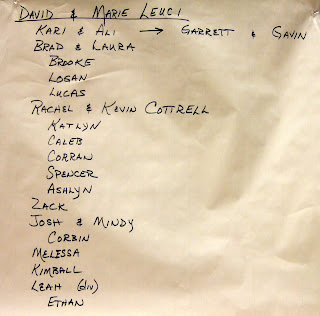 DAVID & MARIE LEUCI
KARI & ALI → GARRETT & GAVIN
BRAD & LAURA
BROOKE
LOGAN
LUCAS
RACHEL & KEVIN COTTRELL
KATLYN
CALEB
CORRAN
SPENCER
ASHLYN
ZACK
JOSH & MINDY
CORBIN
MELESSA
KIMBALL
LEAH (div)
ETHAN